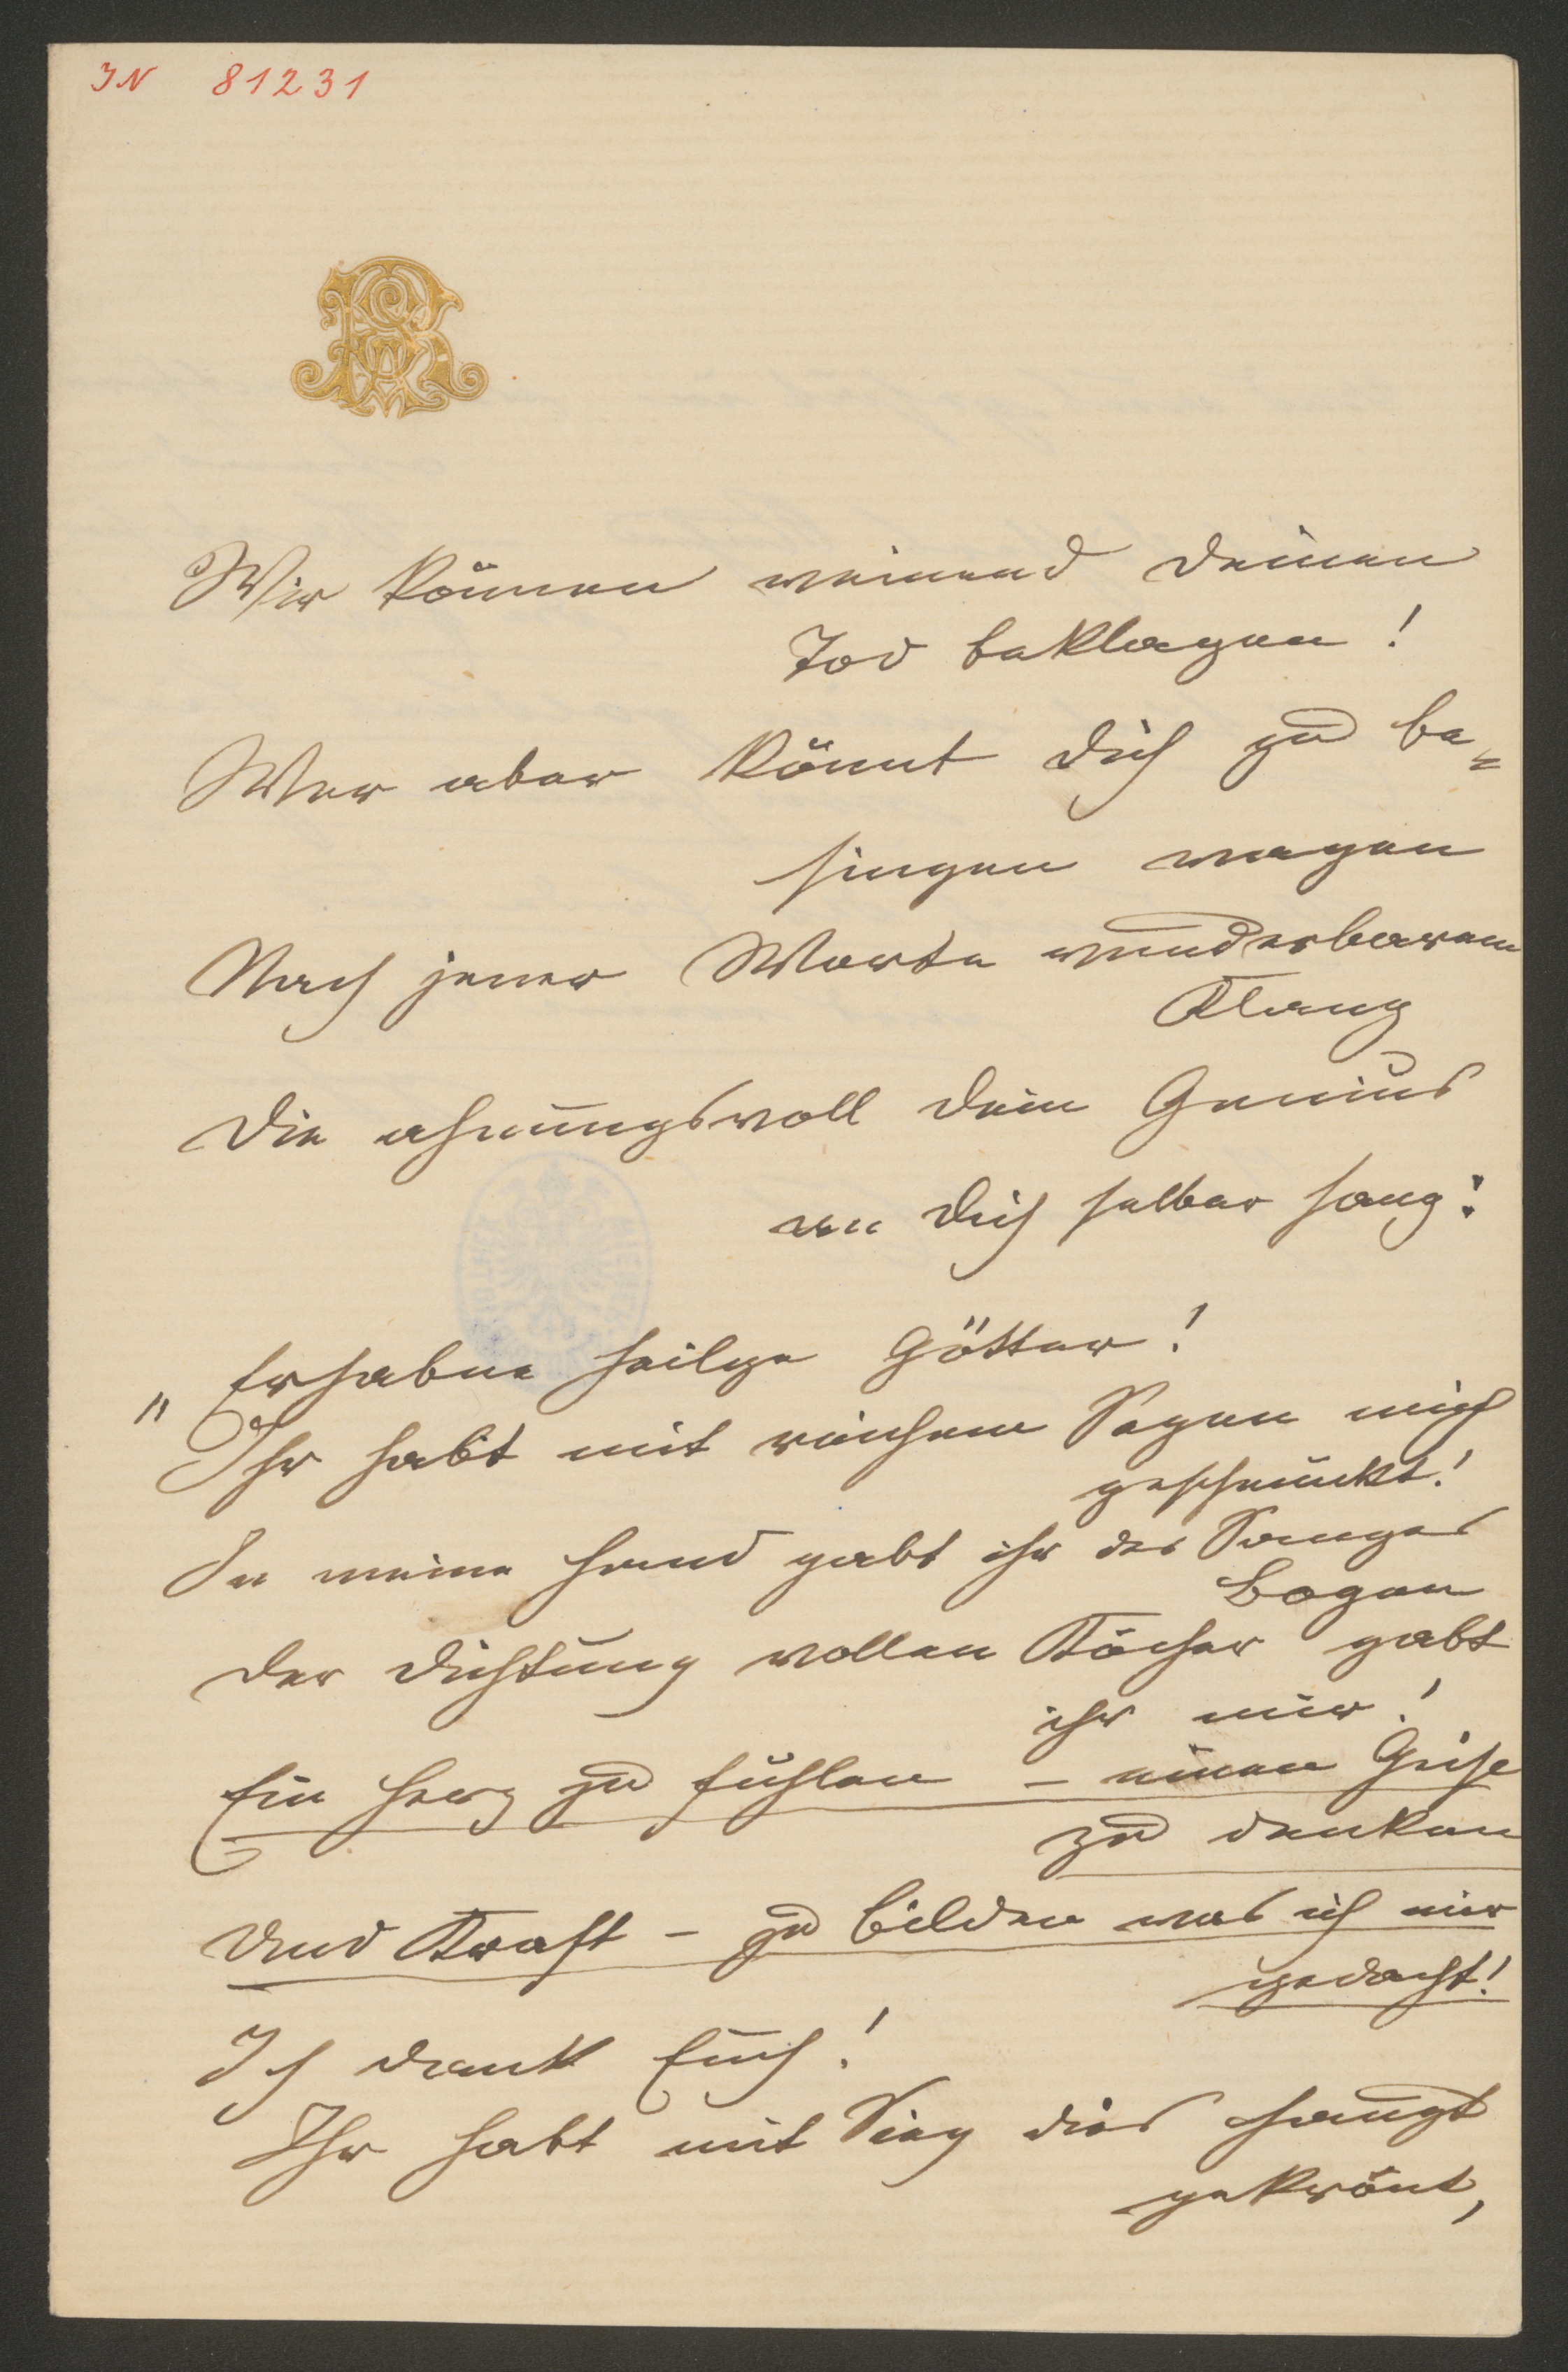 IN 81231
Wir können weinend deinen
Tod beklagen!
Wer aber könnt dich zu be=
singen wagen
Nach jener Worte wunderbarem
Klang
Die ahnungsvoll dein Genius
an dich selber sang:
„Erhabne heilge Götter!
Ihr habt mit reichem Segen mich
geschmückt!
In meine Hand gabt ihr des Sanges
Bogen
Der Dichtung vollen Köcher gabt
ihr mir!
Ein Herz zu fühlen – einen Geist
zu denken
Und Kraft – zu bilden was ich mir
gedacht!
Ich dank Euch!
Ihr habt mit Sieg dies Haupt
gekrönt,